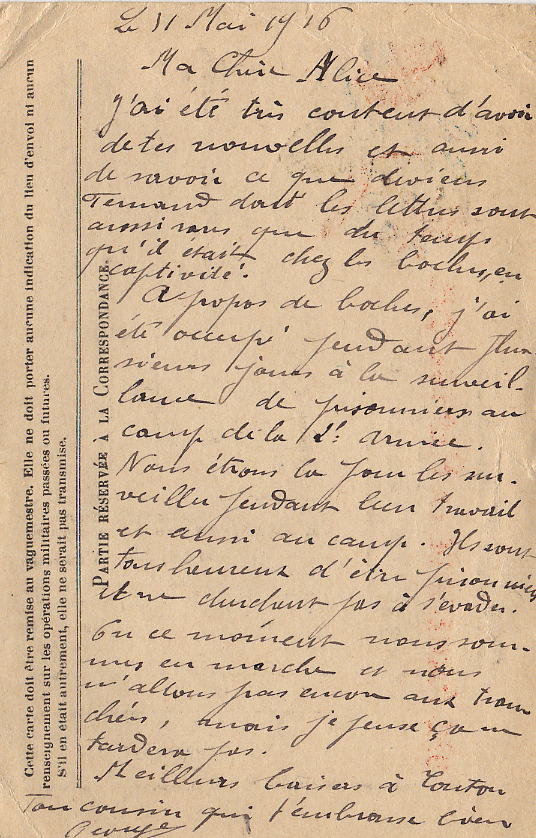 Le 11 Mai 1916
Ma Chère Alice
J'ai été très content d'avoir
de tes nouvelles et aussi
de savoir ce que deviens
Fernand dont les lettres sont
aussi rares que du temps
qu'il était chez les boches, en
captivité.
A propos de boches, j'ai
été occupé pendant plu
sieurs jours à la surveil-
lance de prisonniers au
camp de la 2e armée.
Nous étions là pour les sur-
veiller pendant leur travail
et aussi au camp. Ils sont
tous heureux d'être prisonniers
et ne cherchent pas à s'évader.
En ce moment nous som-
mes en marche et nous
n'allons pas encore aux tran
chées, mais je pense ça ne
tardera pas.
Meilleurs baisers à Tonton
Ton cousin qui t'embrasse bien
Cette carte doit être remise au vaguemestre. Elle ne doit porter aucune indication du lieu d'envoi ni aucun
renseignement sur les opérations militaires passées ou futures.
S'il en était autrement, elle ne serait pas transmise.
PARTIE RÉSERVÉE À LA CORRESPONDANCE